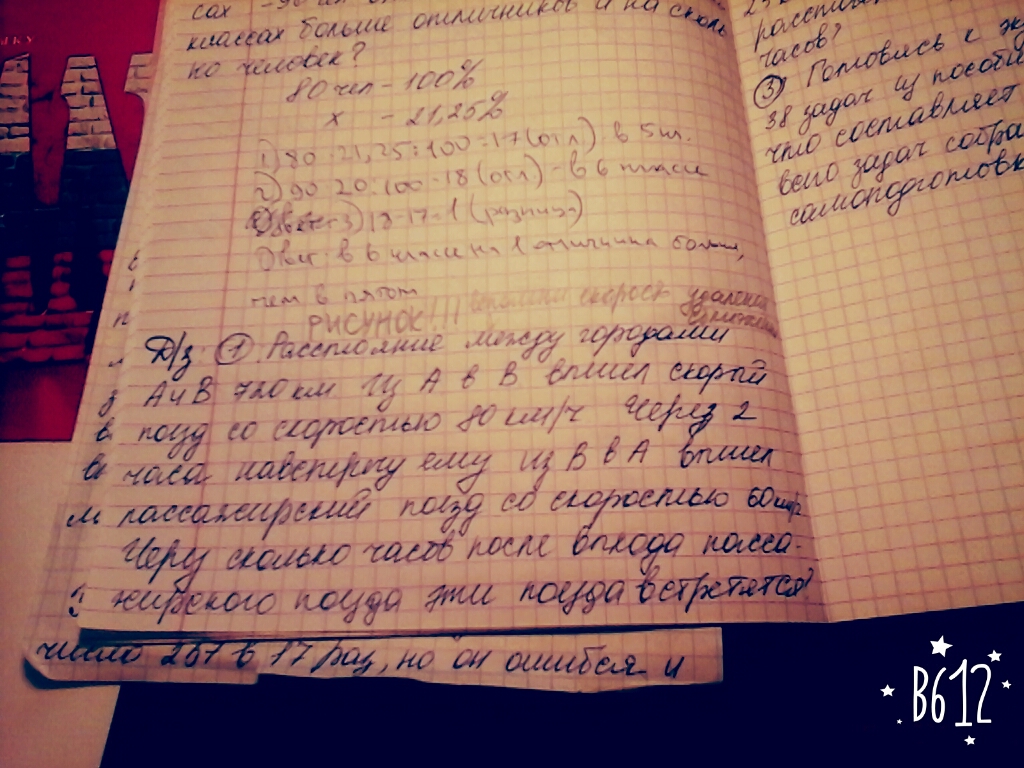 сах - 90 чел
классах больше отличников и на сколь
ко человек?
80 чел - 100%
х - 21,25%
1) 80·21,25:100=17(отл) в 5 кл.
2) 90·20:100=18(отл)-в 6 классе
3) 18-17=1 (разница)
Ответ: в 6 классе на 1 отличника больше,
чем в пятом
РИСУНОК!!! вспомни скорость удаления
Д/з: ① Расстояние между городами
А и В 720 км Из А в В вышел скорый
поезд со скоростью 80 км/ч Через 2
часа навстречу ему из В в А вышел
пассажирский поезд со скоростью 60 км/ч
Через сколько часов после выхода пасса-
жирского поезда эти поезда встретятся?
число 257 в 17 раз, но он ошибся и
часов?
③ Готовясь к
38 задач из пособи
что составляет
всего задач собра
самоподготовк
B612